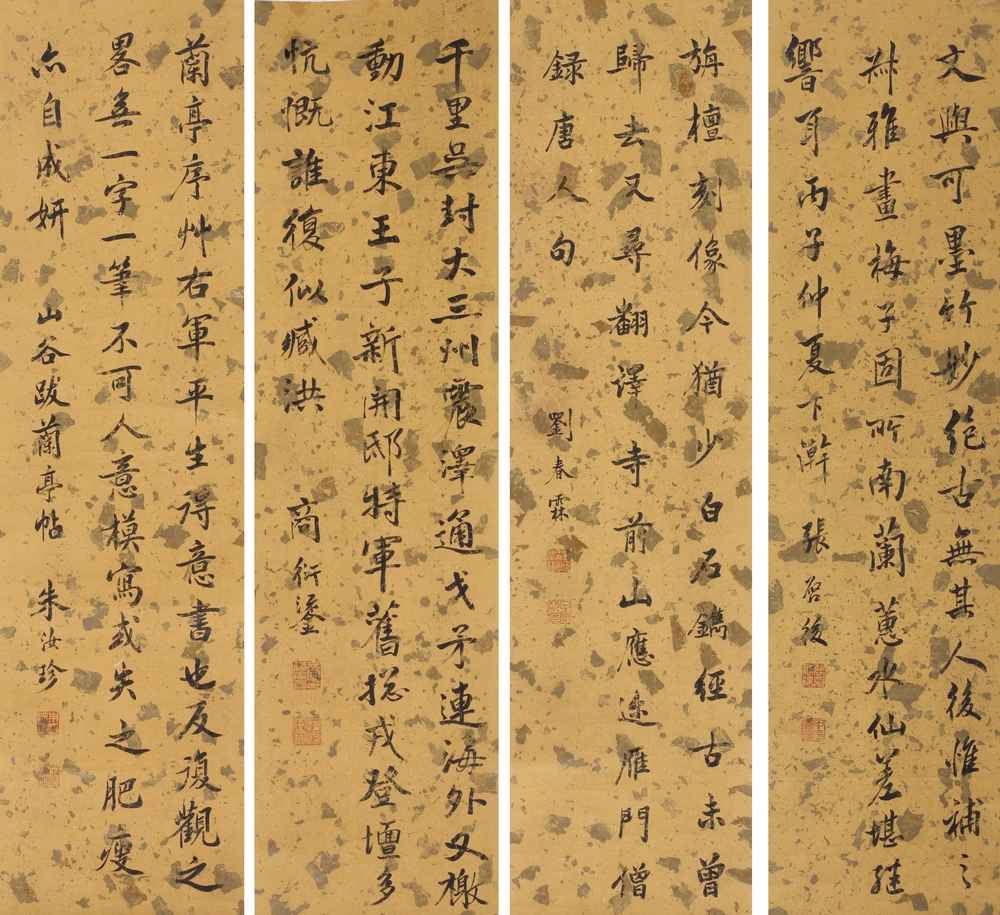 文與可墨竹妙絕古無其人後惟補之
叔雅畫梅子固所南蘭蕙水仙差堪繼
響耳丙子仲夏下澣 張启後
旃檀刻像今猶少白石鐫經古未曾
歸去又尋翻譯寺前山應逢雁門僧
録唐人句 劉春霖
千里吳封大三州震澤通戈矛連海外文檄
動江東王子新開邸將軍舊揔戎登壇多
忼慨誰復似臧洪 商衍鎏
蘭亭序艸右軍平生得意書也反復觀之
畧無一字一筆不可人意模寫或失之肥瘦
亦自成妍 山谷跋蘭亭帖 朱汝珍